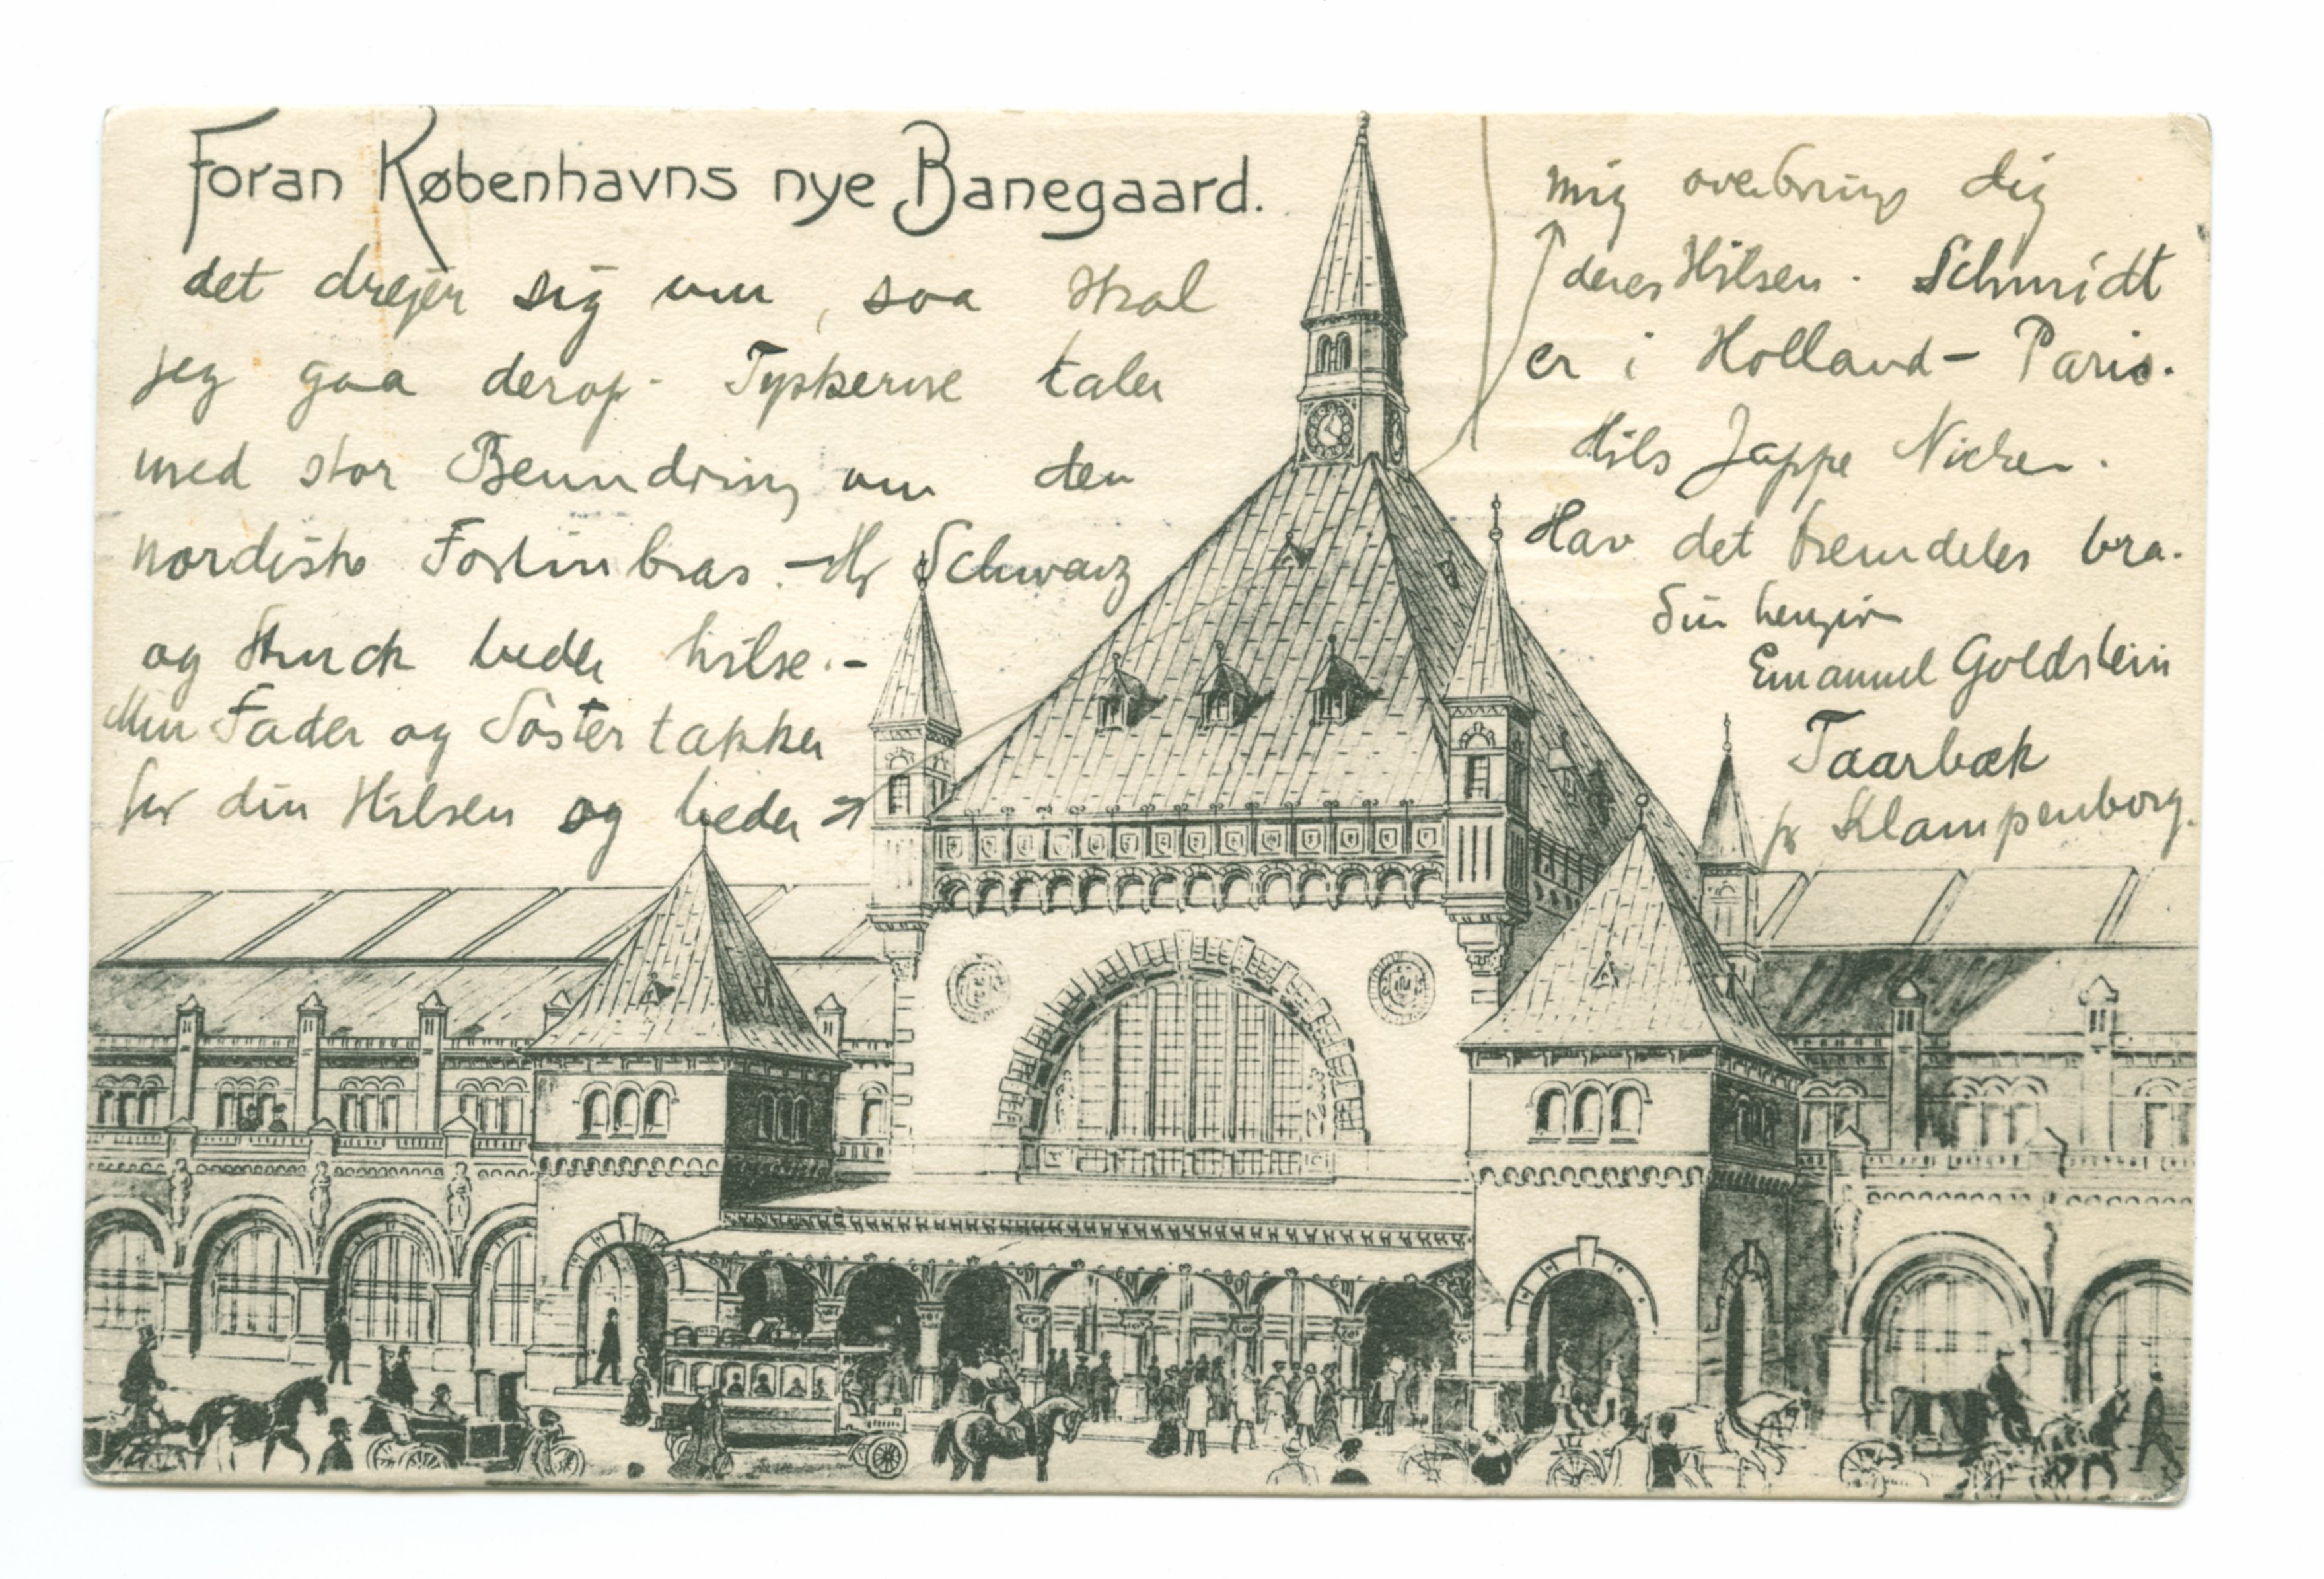 Foran Københavns nye Banegaard.
det drejer sig om, saa skal
jeg gaa derop. Tyskerne taler
med stor Beundring om den
nordiske Fortinbras. – Hr Schwarz
og Struck beder hilse. –
Min Fader og Söster takker
for din Hilsen og beder
mig overbringe dig
deres Hilsen. Schmidt
er i Holland – Paris.
Hils Jappe Nilssen.
Hav det fremdeles bra.
Din hengivne
Emanuel Goldstein
Taarbæk
pr Klampenborg.